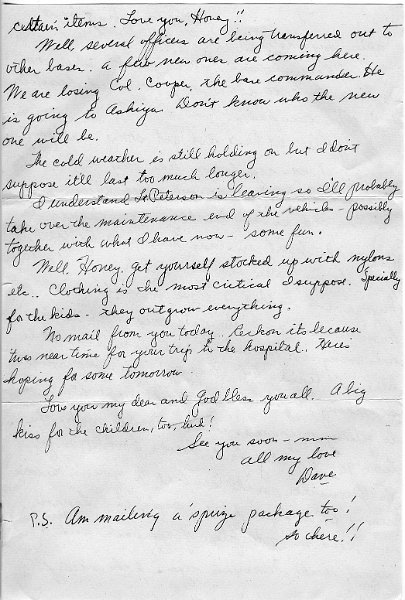 certain items. Love you, Honey!!
Well, several officers are being transferred out to
other bases. A few new ones are coming here.
We are losing Col. Cooper, the base commander. He
is going to Ashiya. Don't know who the new
one will be.
The cold weather is still holding on but I don't
suppose it'll last too much longer.
I understand Lt. Peterson is leaving so I'll probably
take over the maintenance end of the vehicles - possibly
together with what I have now - some fun.
Well Honey, get yourself stocked up with nylons
etc.. Clothing is the most critical I suppose. Specially
for the kids. They outgrow everything.
No mail from you today. Reckon its because
'twas near time for your trip to the hospital. Here's
hoping for some tomorrow.
Love you my dear and God bless you all. A big
kiss for the children, too,
See you soon - mm
all my love
Dave
P.S. Am mailing a 'sprize package too!
So there!!